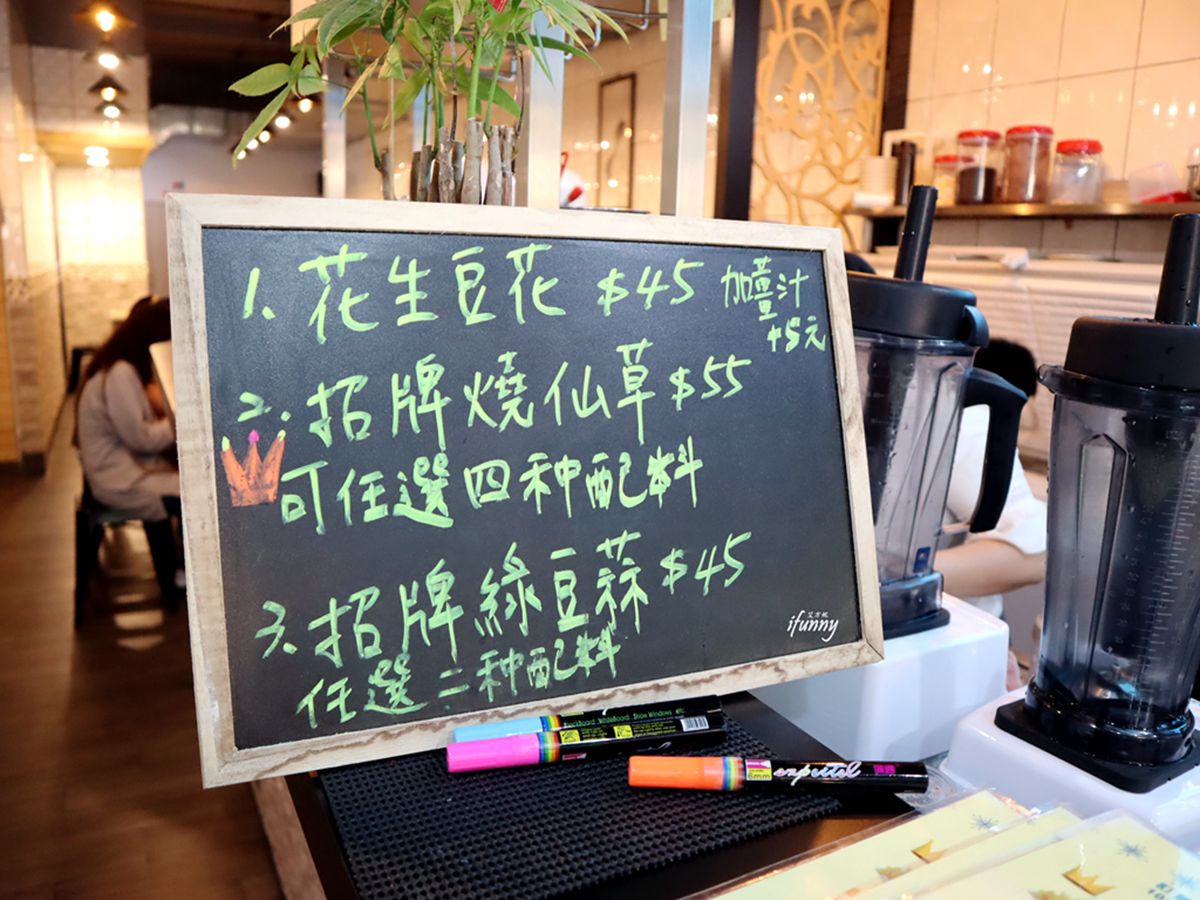 1. 花生豆花 $45 加薑汁
+5元
2. 招牌燒仙草 $55
可任選四种配料
3、招牌綠豆蒜 $45
任選二种配料
艾方妮
ifunny
BlackBoard WhiteBoard Show Windows etc
6mm